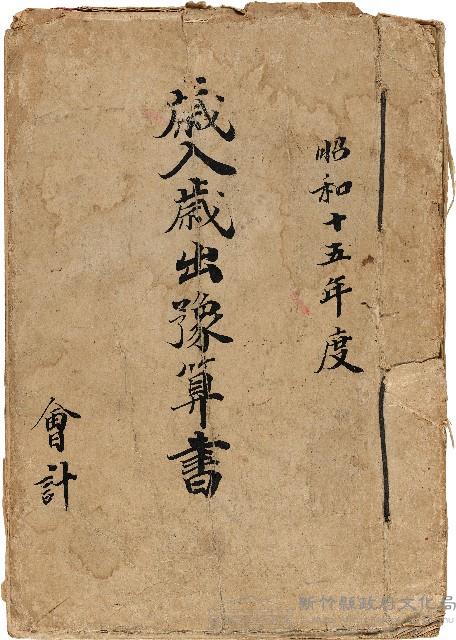 昭和十五年度
歳入歳出豫算書
會計
新竹縣政府文化局